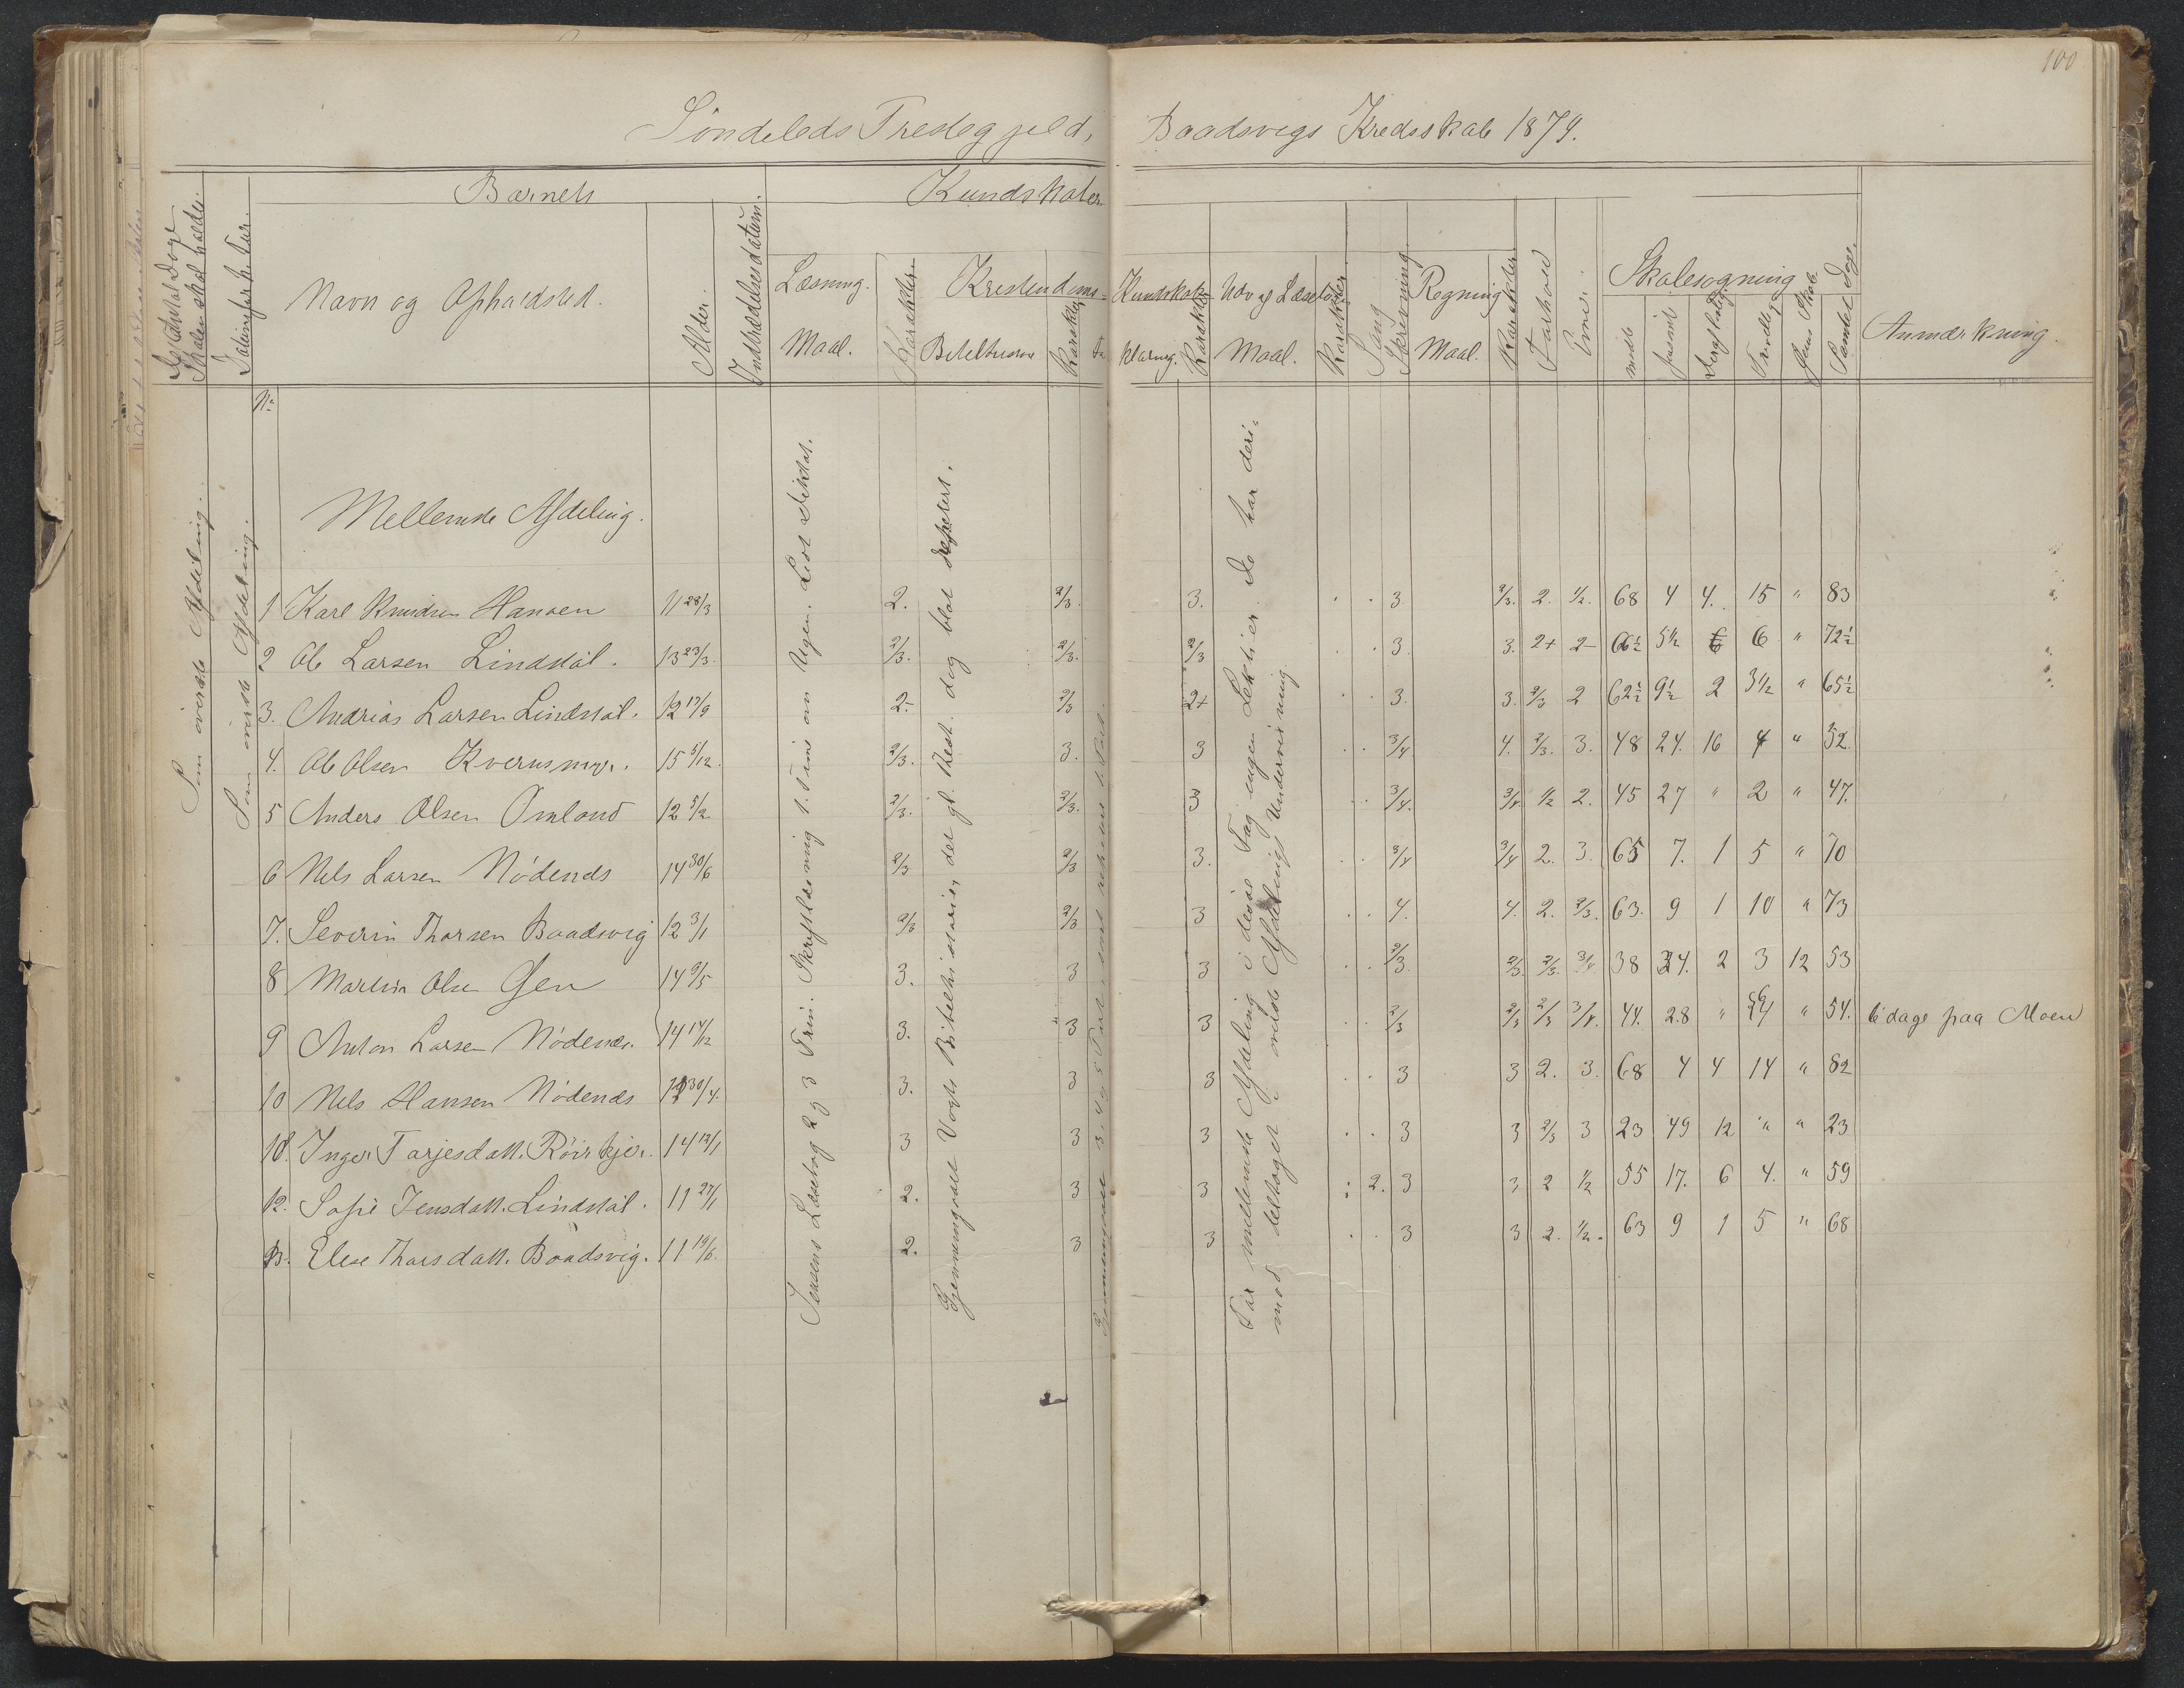 100
Söndeleds Prestegjeld, Baadsvigs Kredsskole 1879.
Barnets
Kundskaber
Navn og Opholdssted.
Alder.
Indtrædelsesdatum.
Læsning. Maal.
Karakter
Kristendoms- Kundskab
Bibelhistorie
Karakter
klaring.
Karakter
Udv. af Læsebog
Maal.
Karakter
Sang
Skrivning
Regning
Maal.
Karakter
Forhold
Evne.
Skolesøgning
mødt
forsømt
Samlet Dage.
Anmærkning.
No
Som øverste Afdeling.
Som øverste Afdeling.
Mellemste Afdeling.
1 Karl Knudsen Hansen 11 28/3 2. 2/3. 3. . . 3 2/3. 2. 1/2. 68 4 4. 15 " 83
2 Ole Larsen Lindstøl. 13 23/3. 2/3. 2/3. 2/3 . . 3. 3. 2+ 2- 66½ 5½ 6 6 " 72½
3. Andrias Larsen Lindstøl. 12 17/9 2- 2/3 2+ . . 3. 3. 2/3 2 62½ 9½ 2 3½ " 65½
4. Ole Olsen Kvernmyr. 15 5/12. 2/3. 3. 3 . . 3/4 4. 2/3. 3. 48 24. 16 4 " 52.
5 Anders Olsen Omland 12 5/2 2/3. 2/3. 3 . . 3/4. 3/4. 1/2 2. 45 27 " 2 " 47.
6 Nels Larsen Nödends 14 30/6 2/3 2/3 3. . . 3/4 3/4 2. 3. 65 7. 1 5 " 70
7. Severin Thorsen Baadsvig 12 3/1 2/3 2/3 3 . . 4. 4. 2. 2/3. 63. 9 1 10 " 73
8 Martin Olsen Gjen 14 9/5 3. 3 3 . . 2/3. 2/3. 2/3. 3/4 38 34. 2 3 12 53
9 Anton Larsen Nödends. 14 14/12 3. 3 3 . . 2/3 2/3 2/3 3/4. 44. 28 " " 54. 6 dage paa Moen
10 Nels Hansen Nödends 12 30/4. 3. 3 3 . . 3 3 2. 3. 68 4 4 14 " 82
Inger Tarjesdatt. Röirkjer. 14 12/1 3 3 3 . . 3 3 2/3 3 23 49 12 " " 23
12. Sofie Jensdatt. Lindstøl. 11 27/1 2. 3 3 : 2. 3 3 2 1/2 55 17. 6 4. " 59
13. Elese Thorsdatt. Baadsvig. 11 19/6. 2. 3 3 . . 3 3 2. 1/2. 63 9 1 5 " 68
Jensens Læsebog 2 og 3 Trin. Skriftlæsning 1. Time om Ugen. Lidt Diktat.
Gjennemgaaet Vogts Bibelhistorie, det gl. Test. dog blot repetert.
Før mellemste Afdeling i disse Fag ingen Lektier. De har deri-
mod deltaget i øverste Afdelings Undervisning.